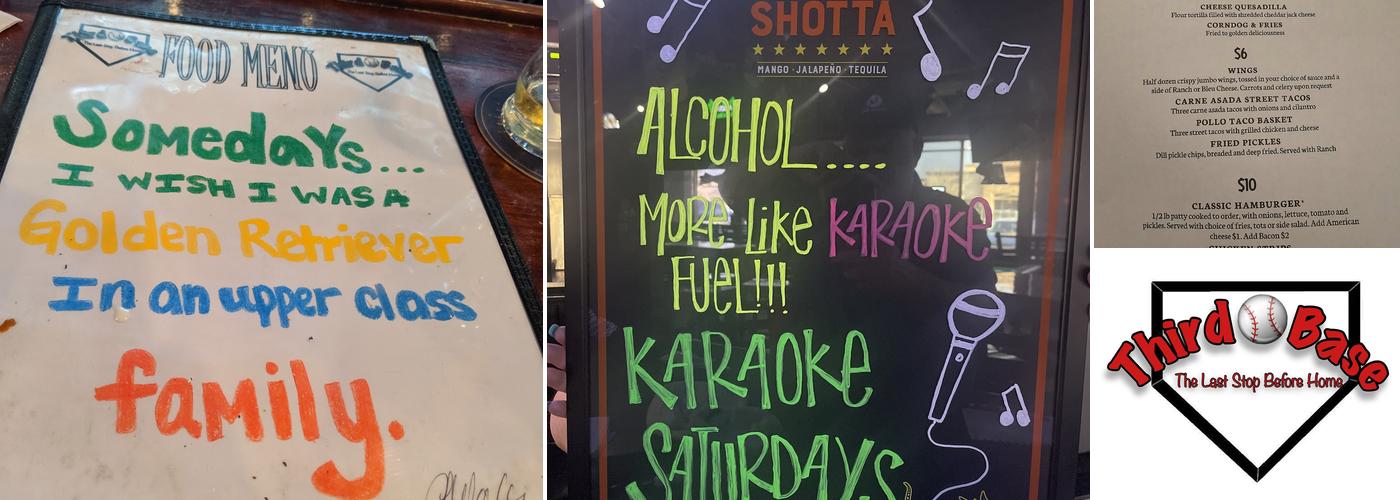 The Last Stop Before Home
FOOD MENU
The Last Stop Before Home
SomedaYs...
I WISH I WAS A
Golden Retriever
In an upper class
family.
SHOTTA
MANGO · JALAPEÑO · TEQUILA
ALCOHOL....
MORE Like KARAOKe
FUeL!!!
KARAOKe
SATURDAYS
CHEESE QUESADILLA
Flour tortillas filled with shredded cheddar jack cheese
CORNDOG & FRIES
Fried to golden deliciousness
$6
WINGS
Half dozen crispy jumbo wings, tossed in your choice of sauce and a
side of Ranch or Bleu Cheese. Carrots and celery upon request
CARNE ASADA STREET TACOS
Three carne asada tacos with onions and cilantro
POLLO TACO BASKET
Three street tacos with grilled chicken and cheese
FRIED PICKLES
Dill pickle chips, breaded and deep fried. Served with Ranch
$10
CLASSIC HAMBURGER*
1/2 lb patty cooked to order, with onions, lettuce, tomato and
pickles. Served with choice of fries, tots or side salad. Add American
cheese $1. Add Bacon $2
CHICKEN STRIPS
Third Base
The Last Stop Before Home